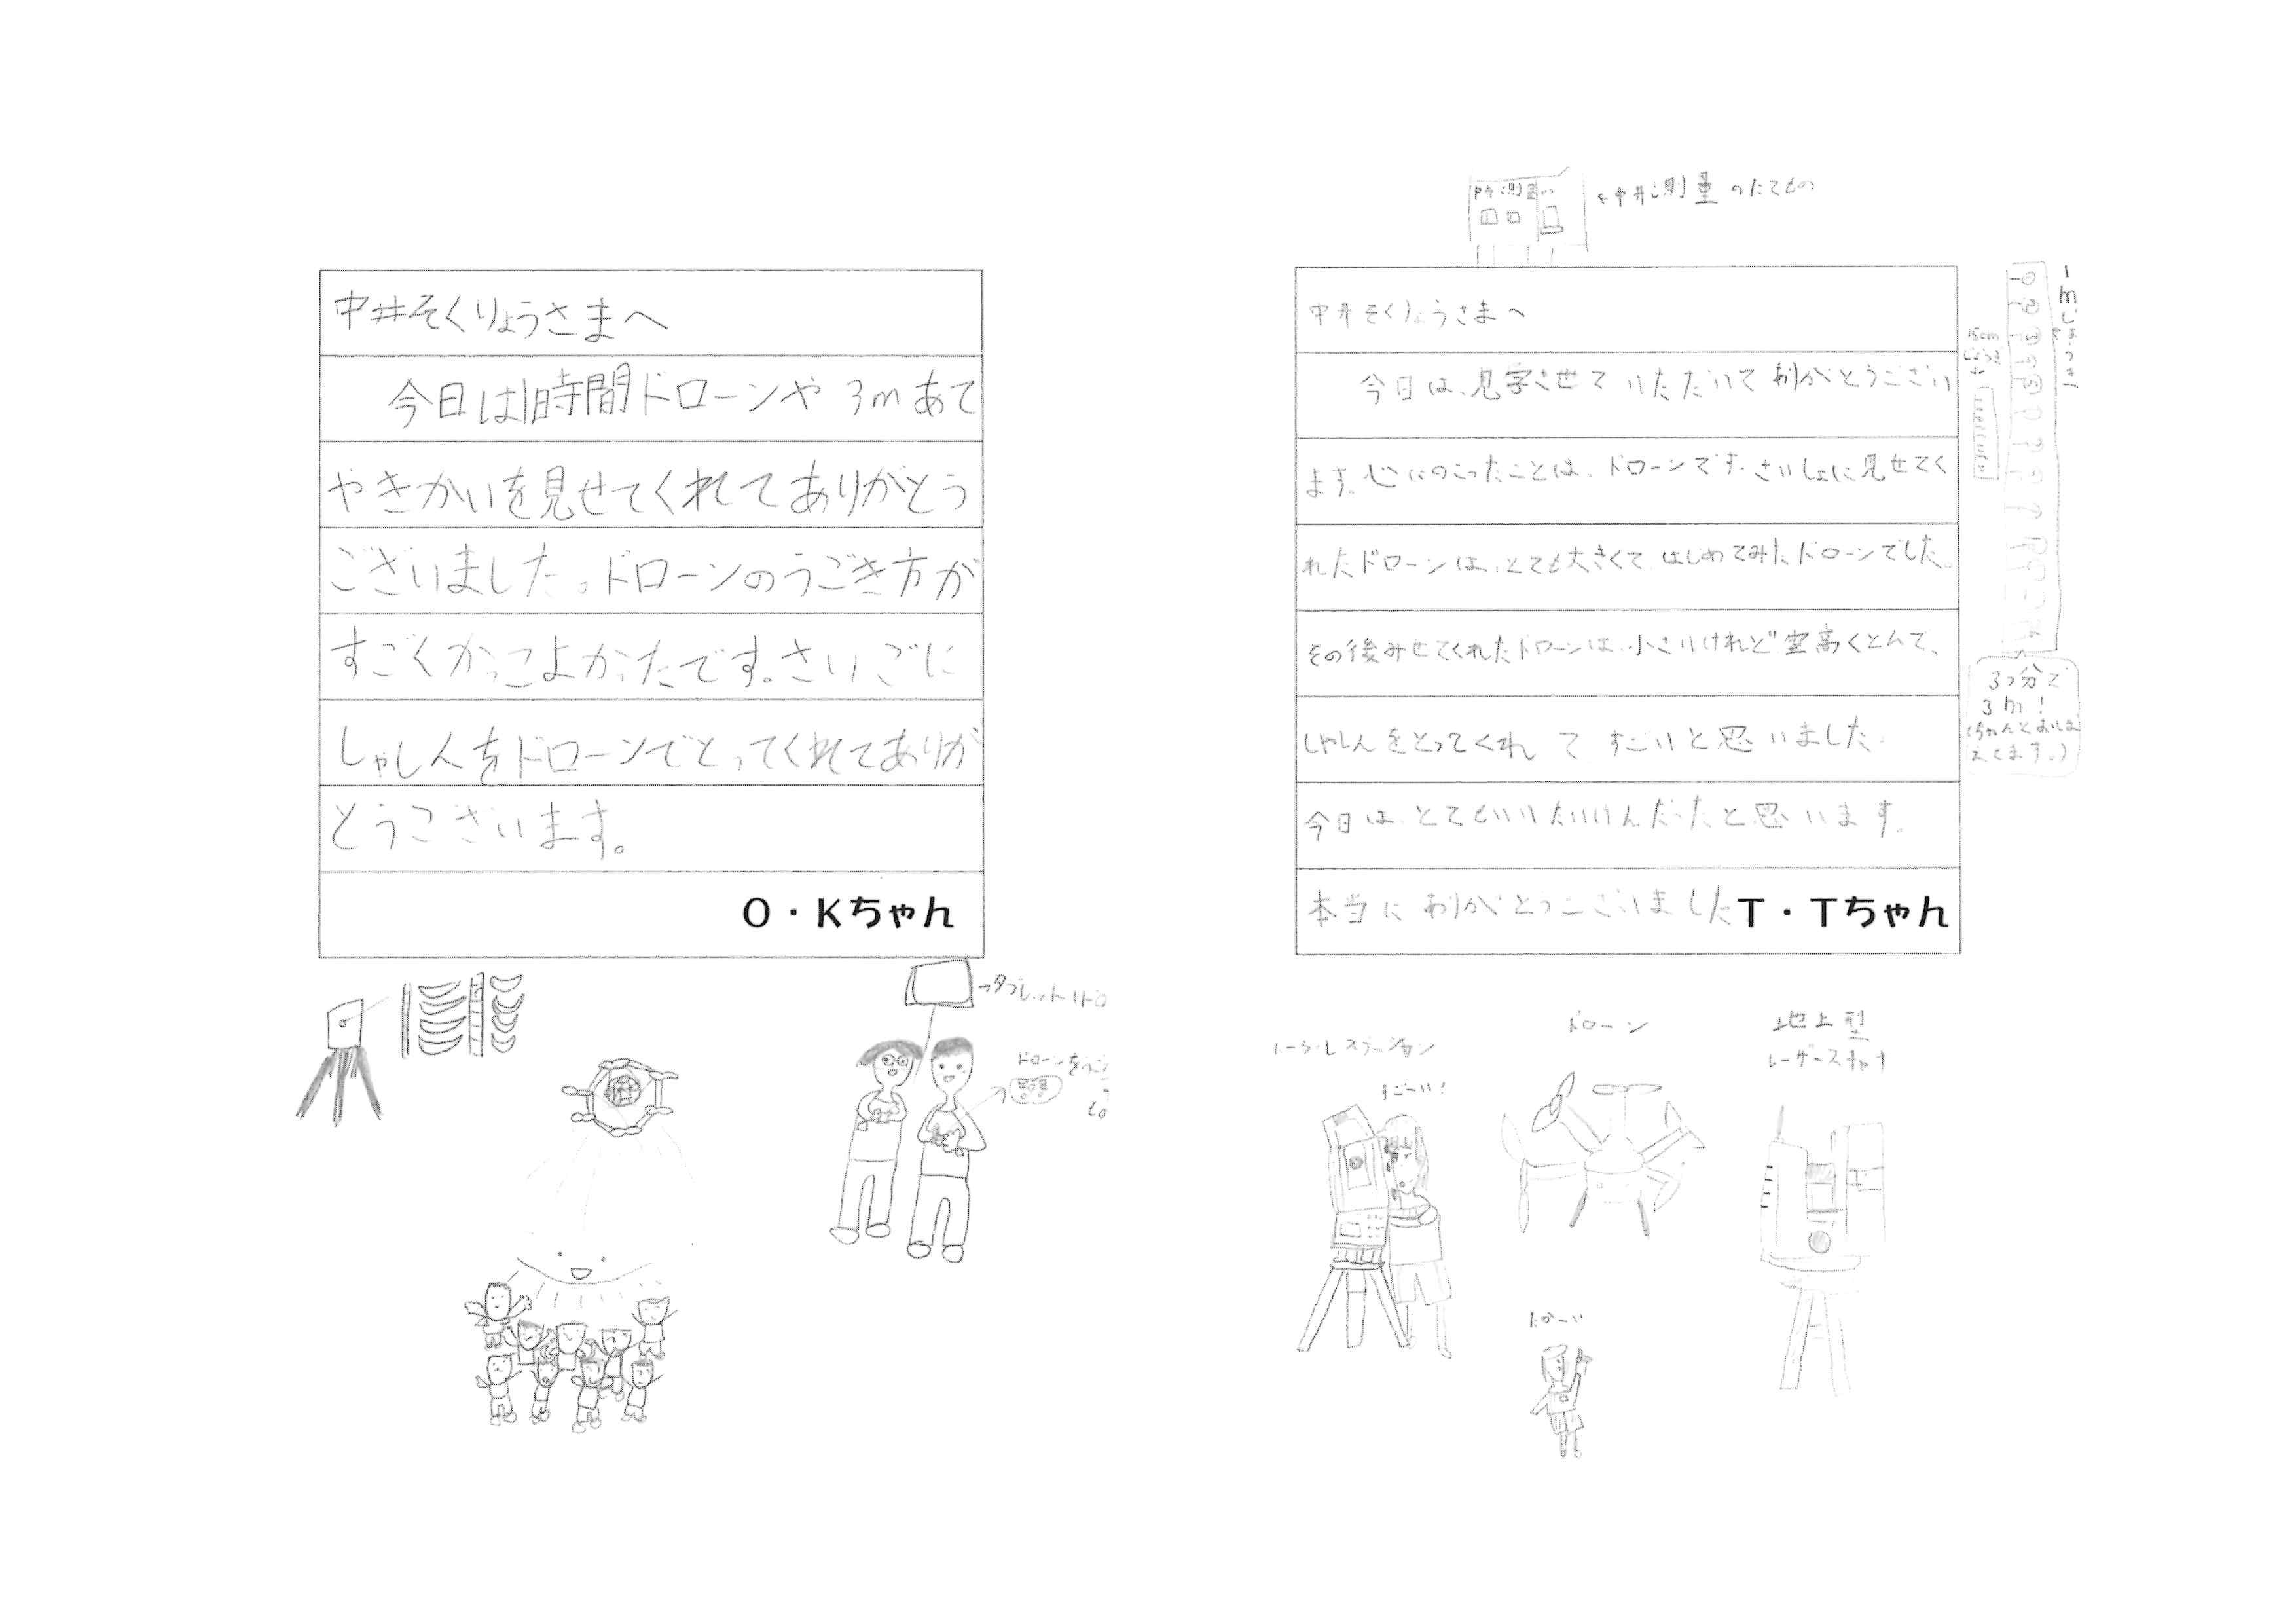 中井そくりょうさまへ
今日は1時間ドローンや 3mあて
やきかいを見せてくれてありがとう
ございました。ドローンのうごき方が
すごくかっこよかったです。さいごに
しゃしんをドローンでとってくれてありが
とうございます。
O・Kちゃん
→タブレット
ドローンを
中井測量
←中井測量のたてもの
中井そくりょうさまへ
今日は、見学させていただいてありがとうござい
ます。心にのこったことは、ドローンです。さいしょに見せてく
れたドローンは、とても大きくて はじめてみたドローンでした。
その後みせてくれたドローンは、小さいけれど空高くとんで、
しゃしんをとってくれて すごいと思いました。
今日は、とてもいいたいけんだったと思います。
本当にありがとうございました
T・Tちゃん
1mじょうぎ
15cm
じょうぎ
3つ分で
3m!
トータルステーション
すごーい!
ドローン
地上型
レーザースキャナ
たかーい